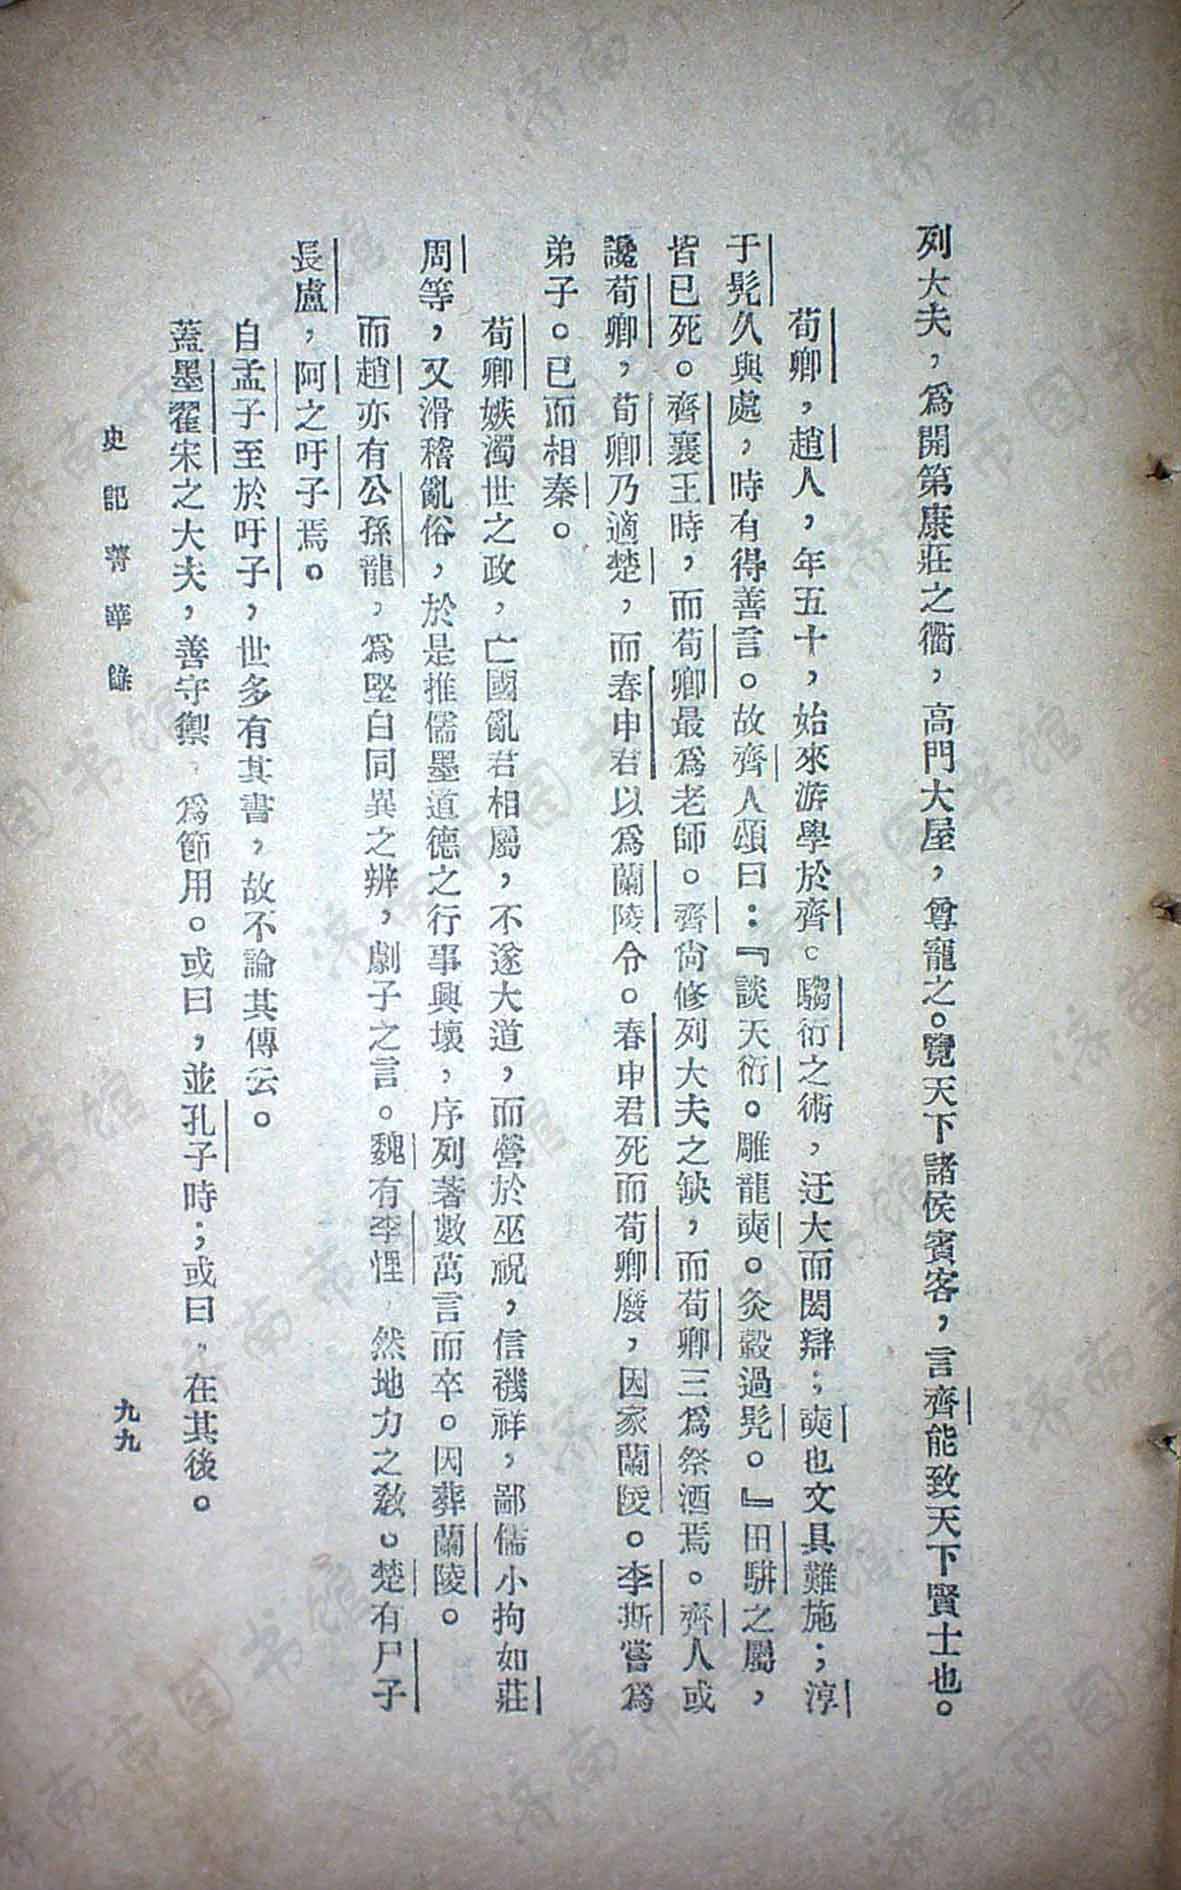 列大夫，爲開第康莊之衢，高門大屋，尊寵之。覽天下諸侯賓客，言齊能致天下賢士也。
荀卿，趙人，年五十，始來游學於齊。騶衍之術，迂大而閎辯；奭也文具難施；淳
于髠久與處，時有得善言。故齊人頌曰：『談天衍。雕龍奭。炙轂過髠。』田駢之屬，
皆已死。齊襄王時，而荀卿最爲老師。齊尙修列大夫之缺，而荀卿三爲祭酒焉。齊人或
讒荀卿，荀卿乃適楚，而春申君以爲蘭陵令。春申君死而荀卿廢，因家蘭陵。李斯嘗爲
弟子。已而相秦。
荀卿嫉濁世之政，亡國亂君相屬，不遂大道，而營於巫祝，信禨祥，鄙儒小拘如莊
周等，又滑稽亂俗，於是推儒墨道德之行事興壞，序列著數萬言而卒。因葬蘭陵。
而趙亦有公孫龍，爲堅白同異之辨，劇子之言。魏有李悝，然地力之敎。楚有尸子
長盧，阿之吁子焉。
自孟子至於吁子，世多有其書，故不論其傳云。
蓋墨翟宋之大夫，善守禦，爲節用。或曰，並孔子時；或曰，在其後。
史記菁華錄
九九
济南市图书馆